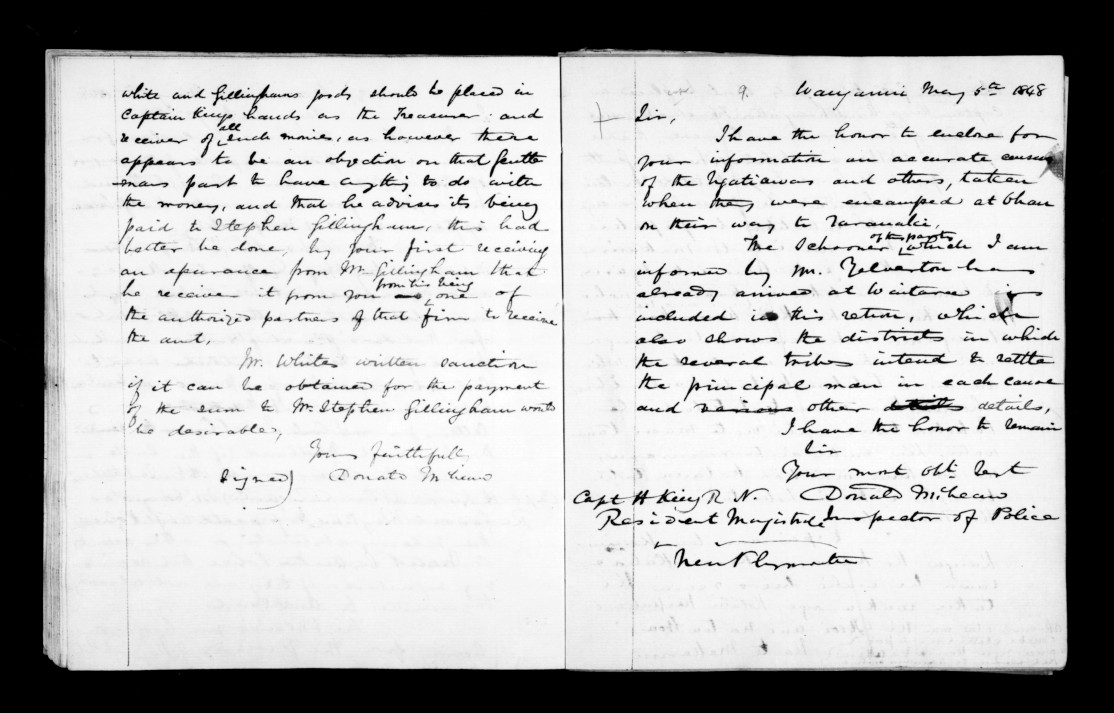 White and Gillinghams goods should be placed in
Captain Kings hands as the Treasurer and
receiver of all such monies, as however there
appears to be an objection on that gentle
mans part to have anything to do with
the money, and that he advises its being
paid to Stephen Gillingham, this had
better be done, by your first receiving
an assurance from Mr Gillingham that
he receives it from you from his being one of
the authorized partners of that firm to receive
the amt,
Mr. Whites written sanction
if it can be obtained for the payment
of the sum to Mr Stephen Gillingham would
be desirable,
Yours faithfully
Signed) Donald McLean
9. Wanganui May 5th 1848
Sir,
I have the honor to enclose for
your information an accurate census
of the Ngatiawas and others, taken
when they were encamped at
on their way to Taranaki,
The Schooner of the party which I am
informed by Mr. Yelverton has
already arrived at Waitara is
included in this return, which
also shows the districts in which
the several tribes intend to settle
the principal man in each canoe
and various other details,
I have the honor to remain
Sir
Your most obt. Sert
Donald McLean
Capt H King R. N.
Resident Magistrate Inspector of Police
New Plymouth